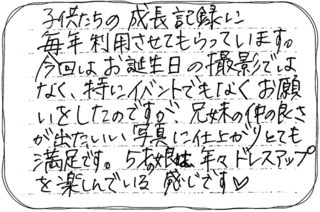 子供たちの成長記録に
毎年利用させてもらっています。
今回はお誕生日の撮影では
なく、特にイベントでもなくお願
いをしたのですが、兄妹の仲の良さ
が出たいい写真に仕上がりとても
満足です。5才娘は年々ドレスアップ
を楽しんでいる感じです♡